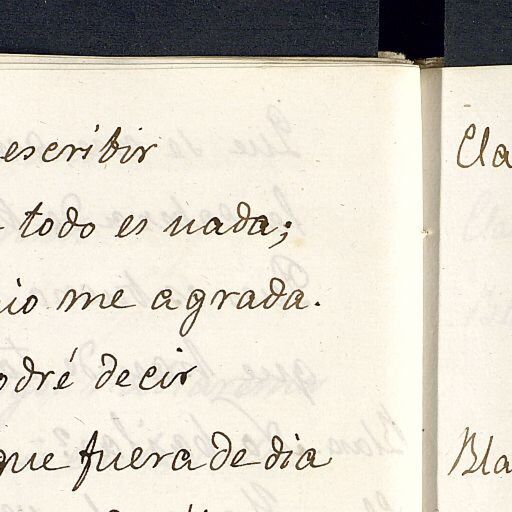 escribir
todo es nada;
io me agrada.
odré decir
que fuera de dia
Cla
Bla